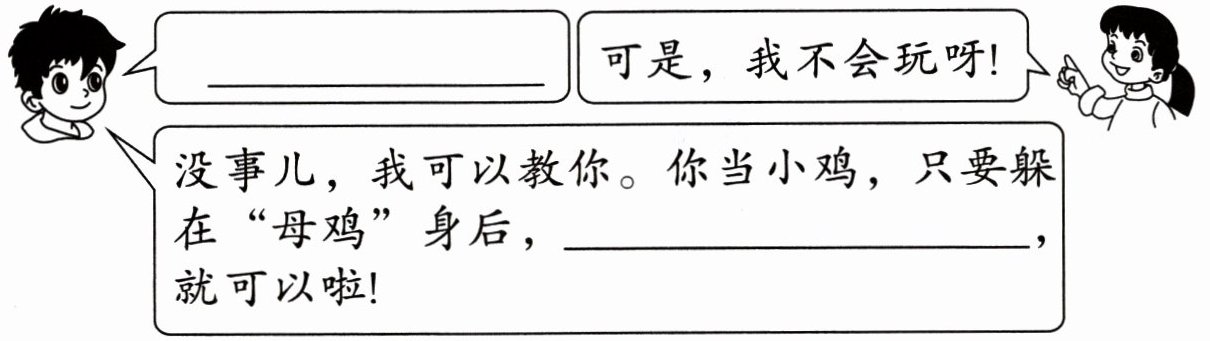 可是，我不会玩呀！
没事儿，我可以教你。你当小鸡，只要躲
在“母鸡”身后，＿＿＿＿＿＿＿＿＿＿，
就可以啦！